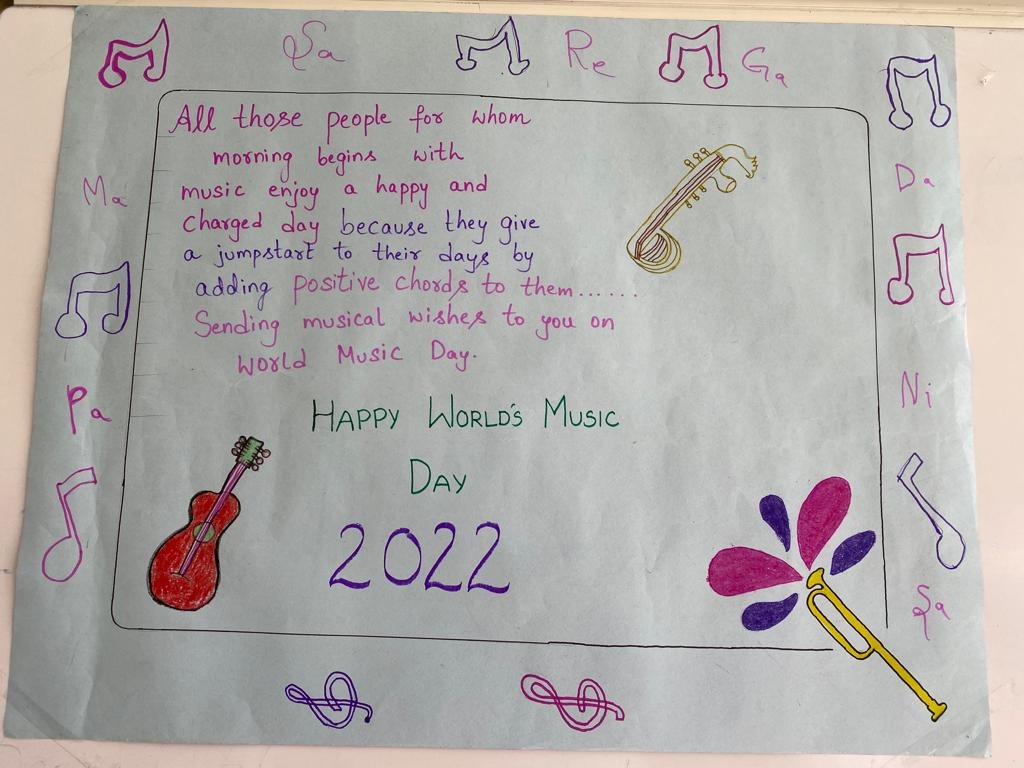 Sa Re Ga
All those people for whom
morning begins with
music enjoy a happy and
charged day because they give
a jumpstart to their days by
adding positive chords to them......
Sending musical wishes to you on
World Music Day.
HAPPY WORLD'S MUSIC
DAY
2022
Ma
Pa
Da
Ni
Sa